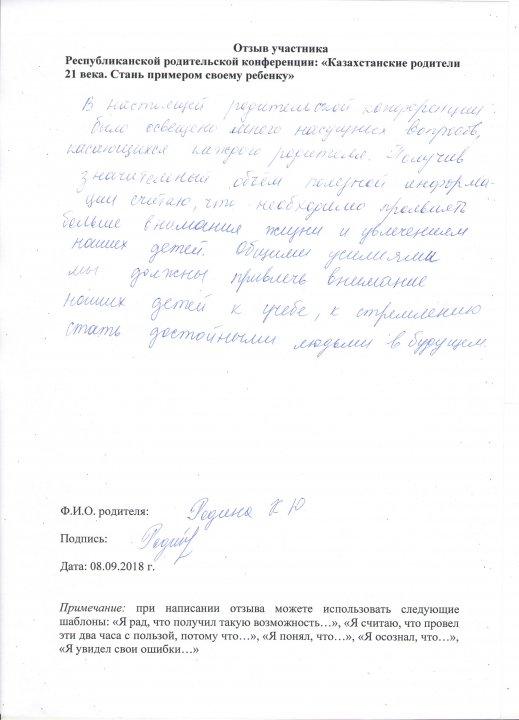 Отзыв участника
Республиканской родительской конференции: «Казахстанские родители
21 века. Стань примером своему ребенку»
В настоящей родительской конференции
было освещено много насущных вопросов,
касающихся каждого родителя. Получив
значительный объём полезной информа-
ции считаю, что необходимо проявлять
больше внимания жизни и увлечениям
наших детей. Общими усилиями
мы должны привлечь внимание
наших детей к учебе, к стремлению
стать достойными людьми в будущем.
Ф.И.О. родителя: Родина К Ю
Подпись:
Дата: 08.09.2018 г.
Примечание: при написании отзыва можете использовать следующие
шаблоны: «Я рад, что получил такую возможность…», «Я считаю, что провел
эти два часа с пользой, потому что…», «Я понял, что…», «Я осознал, что…»,
«Я увидел свои ошибки…»